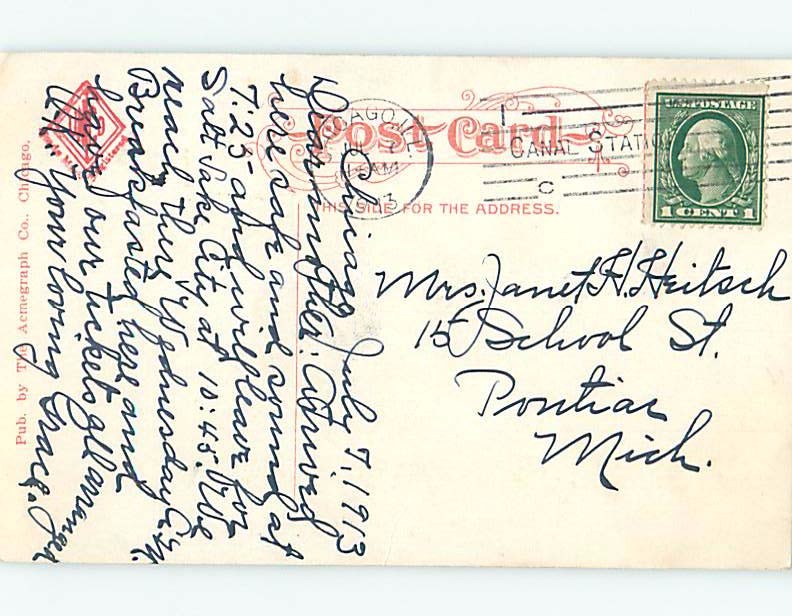 Chicago July 7, 1913
Dear mother: Arrived
here safe and sound at
7:25 and will leave for
Salt Lake City at 10:45. We
reach there Wednesday P.M.
Breakfasted here and
have our tickets all arranged
Your loving Grace.
Pub. by The Acmegraph Co., Chicago.
Post Card
THIS SIDE FOR THE ADDRESS.
CHICAGO, ILL.
JUL 7
AM
1913
CANAL STATION
C
U.S. POSTAGE
1 CENT 1
Mrs. Janet H. Heitsch
15 School St.
Pontiac
Mich.